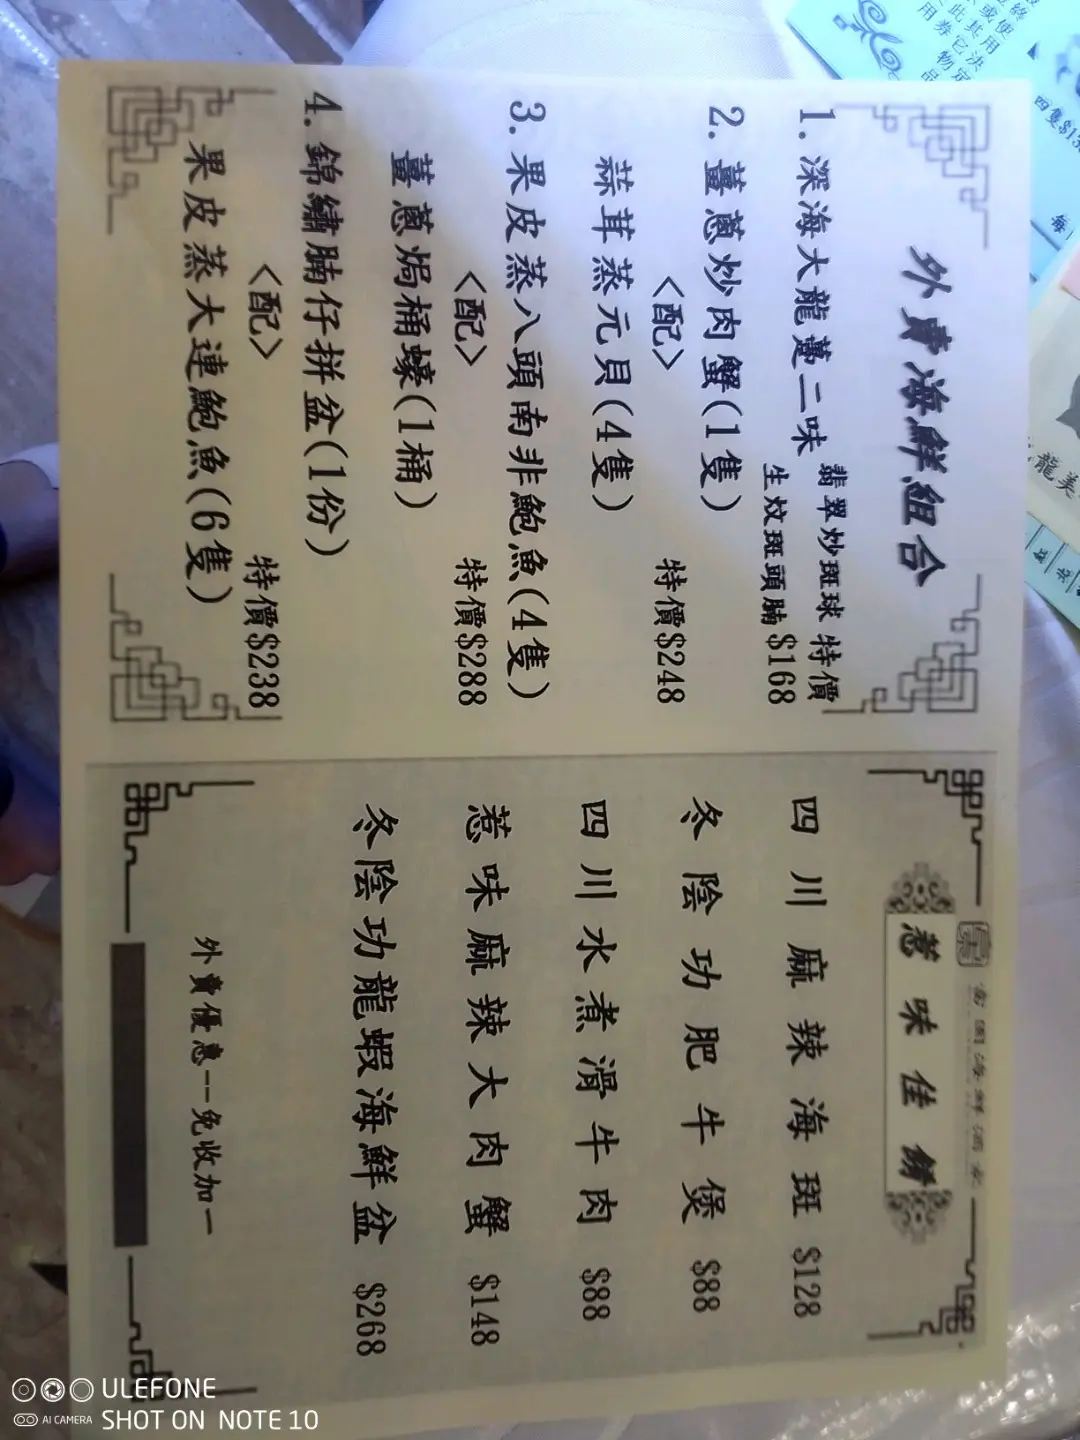 外賣海鮮組合
1.深海大龍躉二味 翡翠炒斑球 特價
生炆斑頭腩 $168
2.薑蔥炒肉蟹(1隻)
<配>
特價$248
蒜茸蒸元貝(4隻)
3.果皮蒸八頭南非鮑魚(4隻)
<配>
特價$288
薑蔥焗桶蠔(1桶)
4.錦繡腩仔拼盆(1份)
<配>
特價$238
果皮蒸大連鮑魚(6隻)
惹味佳餚
四川麻辣海斑 $128
冬陰功肥牛煲 $88
四川水煮滑牛肉 $88
惹味麻辣大肉蟹 $148
冬陰功龍蝦海鮮盆 $268
外賣優惠--免收加一
龍美
ULEFONE
AI CAMERA
SHOT ON NOTE 10